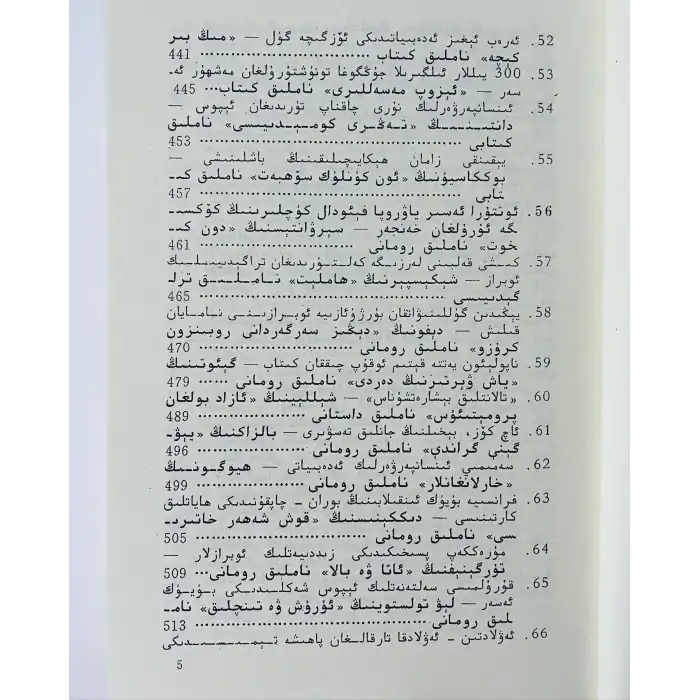 52. ئەرەب ئېغىز ئەدەبىياتىدىكى ئۆزگىچە گۈل — «مىڭ بىر
كېچە» ناملىق كىتاب ············ 441
53. 300 يىللار ئىلگىرىلا جۇڭگوغا تونۇشتۇرۇلغان مەشھۇر ئە-
سەر — «ئېزوپ مەسەللىرى» ناملىق كىتاب··· 445
54. ئىنسانپەرۋەرلىك نۇرى چاقناپ تۇرىدىغان ئېپوس —
دانتېنىڭ «تەڭرى كومېدىيىسى» ناملىق
كىتابى ············ 453
55. يېقىنقى زامان ھېكايىچىلىقىنىڭ باشلىنىشى —
بوككاسيۇنىڭ «ئون كۈنلۈك سۆھبەت» ناملىق كى-
تابى ············ 457
56. ئوتتۇرا ئەسىر ياۋروپا فېئودال كۈچلىرىنىڭ كۆكسى-
گە ئۇرۇلغان خەنجەر — سېرۋانتېسنىڭ «دون كى-
خوت» ناملىق رومانى ············ 461
57. كىشى قەلبىنى لەرزىگە كەلتۈرىدىغان تراگېدىيىلىك
ئوبراز — شېكىسپىرنىڭ «ھاملېت» ناملىق ترا-
گېدىيىسى ············ 465
58. يېڭىدىن گۈللىنىۋاتقان بۇرژۇئازىيە ئوبرازىنى نامايان
قىلىش — دېفونىڭ «دېڭىز سەرگەردانى روبىنزون
كرۇزو» ناملىق رومانى ············ 470
59. ناپولېئون يەتتە قېتىم ئوقۇپ چىققان كىتاب — گېئوتىنىڭ
«ياش ۋېرتىرنىڭ دەردى» ناملىق رومانى ······ 479
60. «تالانتلىق بېشارەتشۇناس» — شېللىينىڭ «ئازاد بولغان
پرومېتېئۇس» ناملىق داستانى ············ 489
61. ئاچ كۆز، بېخىلنىڭ جانلىق تەسۋىرى — بالزاكنىڭ «يېۋ-
گېنى گراندې» ناملىق رومانى ············ 496
62. سەمىمىي ئىنسانپەرۋەرلىك ئەدەبىياتى — ھيۇگونىڭ
«خارلانغانلار» ناملىق رومانى ············ 499
63. فرانسىيە بۈيۈك ئىنقىلابىنىڭ بوران - چاپقۇنىدىكى ھاياتلىق
كارتىنىسى — دىككېنىسنىڭ «قوش شەھەر خاتىرى-
سى» ناملىق رومانى ············ 505
64. مۇرەككەپ پسىخىكىدىكى زىددىيەتلىك ئوبرازلار —
تۇرگېنېفنىڭ «ئاتا ۋە بالا» ناملىق رومانى··· 509
65. قۇرۇلمىسى سەلتەنەتلىك ئېپوس شەكلىدىكى بۈيۈك
ئەسەر — لېۋ تولستوينىڭ «ئۇرۇش ۋە تىنچلىق» نام-
لىق رومانى ············ 513
66. ئەۋلادتىن - ئەۋلادقا تارقالغان پاھىشە تېمىسىدىكى
5